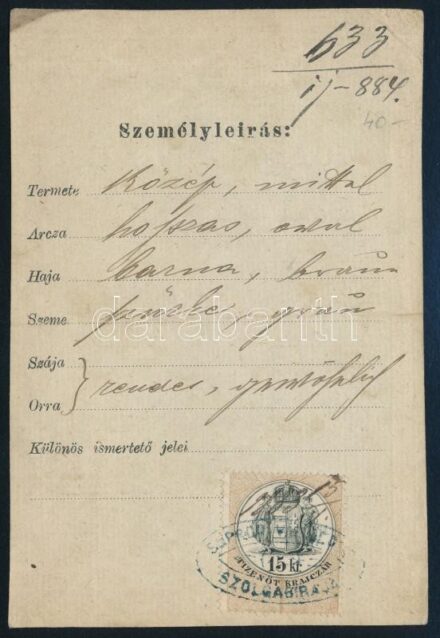 633
ij-884.
40-
Személyleirás:
Termete Közép, mittel
Arcza hoszas, oval
Haja barna, braun
Szeme szürke, grau
Szája
Orra rendes, gewöhnlich
Különös ismertető jelei
darabanth
15 kr.
TIZENÖT KRAJCZÁR
SZOLGABIRÁJA